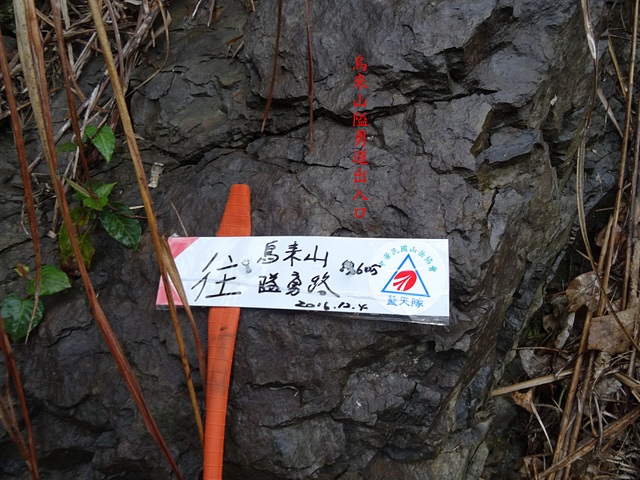 烏來山隘勇道出入口
往 烏來山
隘勇路
2016.12.4
中華民國山岳協會
藍天隊